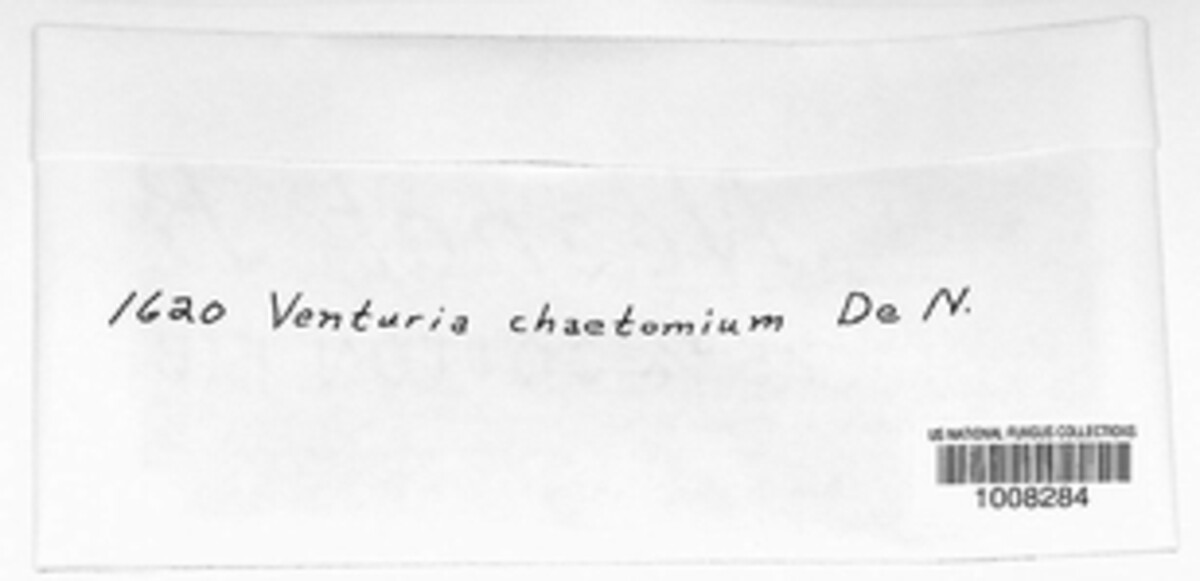 1620 Venturia chaetomium De N.
US NATIONAL FUNGUS COLLECTIONS
1008284